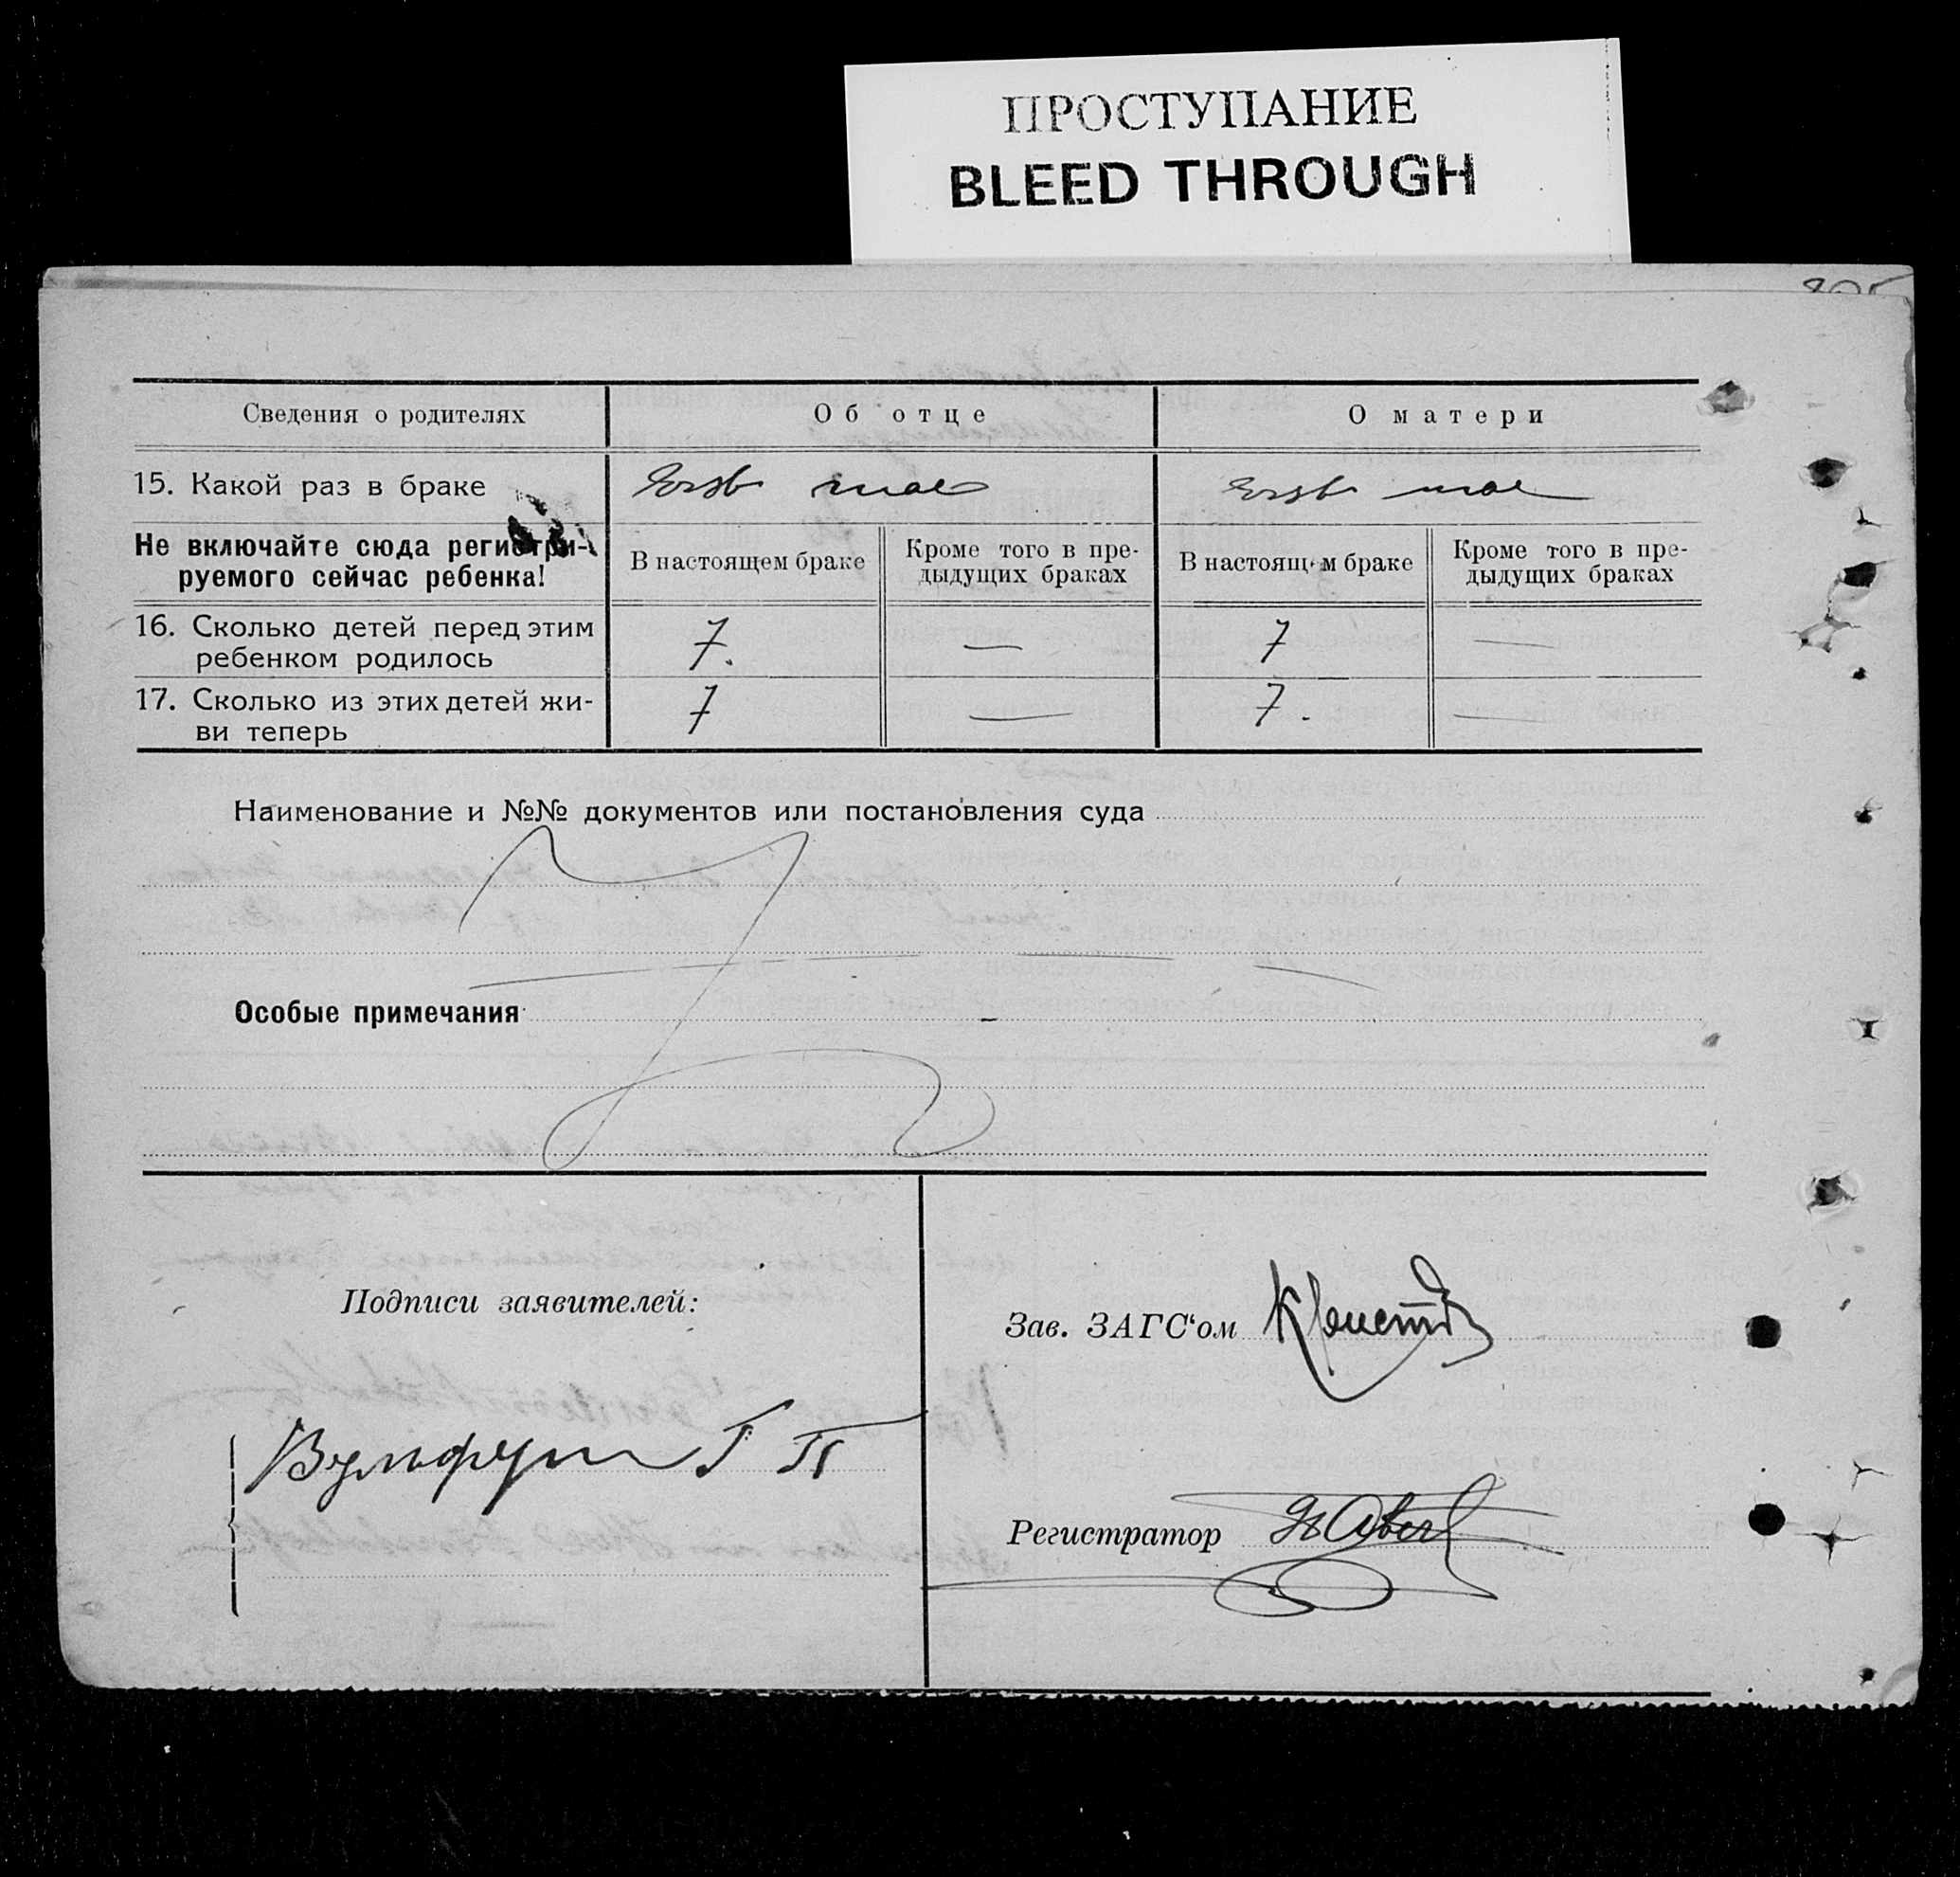 ПРОСТУПАНИЕ
BLEED THROUGH
Сведения о родителях
Об отце
О матери
15. Какой раз в браке
Erst mal
Erst mal
Не включайте сюда регистри-
руемого сейчас ребенка!
В настоящем браке
Кроме того в пре-
дыдущих браках
В настоящем браке
Кроме того в пре-
дыдущих браках
16. Сколько детей перед этим
ребенком родилось
7.
—
7
—
17. Сколько из этих детей жи-
ви теперь
7
—
7.
—
Наименование и №№ документов или постановления суда
Особые примечания
Подписи заявителей:
Зав. ЗАГС‘ом
Г П
Регистратор